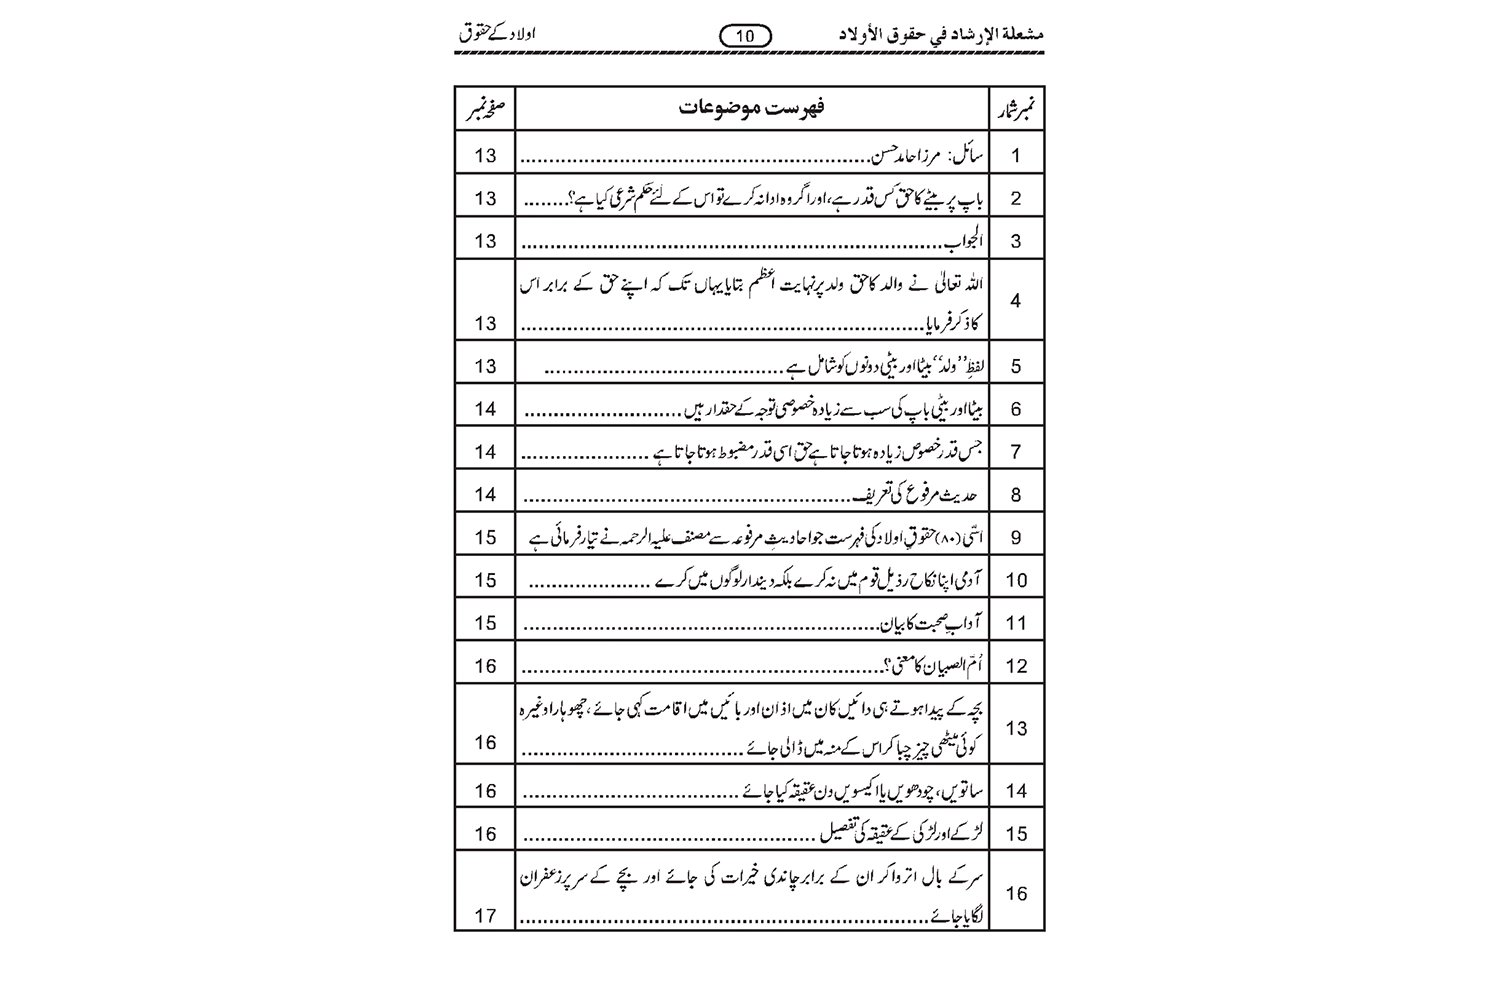 مشعلة الإرشاد في حقوق الأولاد 10 اولاد کے حقوق
نمبر شمار فہرست موضوعات صفحہ نمبر
1 سائل: مرزا حامد حسن........................................................... 13
2 باپ پر بیٹے کا حق کس قدر ہے، اور اگر وہ ادا نہ کرے تو اس کے لئے حکم شرعی کیا ہے؟........ 13
3 الجواب........................................................................ 13
4 اللہ تعالیٰ نے والد کا حق ولد پر نہایت اعظم بتایا یہاں تک کہ اپنے حق کے برابر اس
کا ذکر فرمایا..................................................................... 13
5 لفظِ ’’ولد‘‘ بیٹا اور بیٹی دونوں کو شامل ہے ......................................... 13
6 بیٹا اور بیٹی باپ کی سب سے زیادہ خصوصی توجہ کے حقدار ہیں ........................... 14
7 جس قدر خصوص زیادہ ہوتا جاتا ہے حق اسی قدر مضبوط ہوتا جاتا ہے ...................... 14
8 حدیث مرفوع کی تعریف........................................................ 14
9 اسّی (۸۰) حقوقِ اولاد کی فہرست جو احادیثِ مرفوعہ سے مصنف علیہ الرحمہ نے تیار فرمائی ہے 15
10 آدمی اپنا نکاح رذیل قوم میں نہ کرے بلکہ دیندار لوگوں میں کرے ..................... 15
11 آدابِ صحبت کا بیان............................................................. 15
12 اُمّ الصبیان کا معنی؟.............................................................. 16
13 بچہ کے پیدا ہوتے ہی دائیں کان میں اذان اور بائیں میں اقامت کہی جائے ، چھوہارا وغیرہ
کوئی میٹھی چیز چبا کر اس کے منہ میں ڈالی جائے ...................................... 16
14 ساتویں، چودھویں یا اکیسویں دن عقیقہ کیا جائے ..................................... 16
15 لڑکے اور لڑکی کے عقیقہ کی تفصیل .................................................. 16
16 سر کے بال اتروا کر ان کے برابر چاندی خیرات کی جائے اور بچے کے سر پر زعفران
لگایا جائے...................................................................... 17